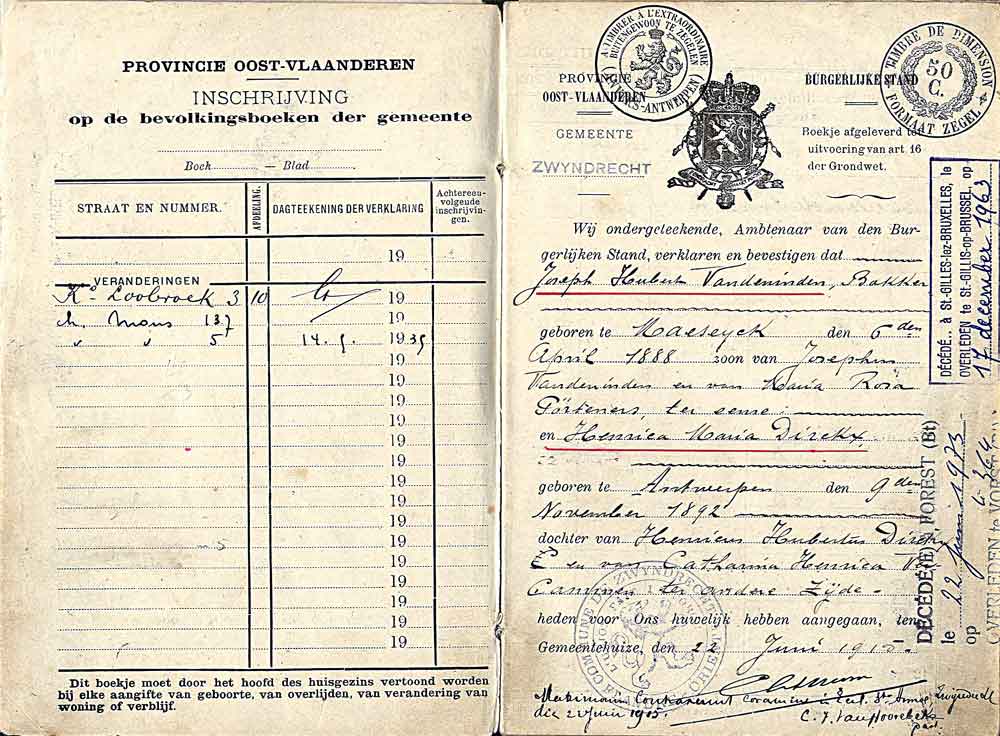 PROVINCIE OOST-VLAANDEREN
INSCHRIJVING
op de bevolkingsboeken der gemeente
Boek — Blad
STRAAT EN NUMMER.
AFDEELING.
DAGTEEKENING DER VERKLARING
Achtereen-
volgende
inschrijvin-
gen.
19
VERANDERINGEN
Loobroek 3 10 19
ch. Mons 137 19
" " 5 14. 9. 1939
19
19
19
19
19
19
19
19
19
19
19
19
19
19
19
Dit boekje moet door het hoofd des huisgezins vertoond worden
bij elke aangifte van geboorte, van overlijden, van verandering van
woning of verblijf.
A TIMBRER À L'EXTRAORDINAIRE
BUITENGEWOON TE ZEGELEN
ANVERS-ANTWERPEN
TIMBRE DE DIMENSION
50
C.
FORMAAT ZEGEL
PROVINCIE
OOST-VLAANDEREN
GEMEENTE
ZWYNDRECHT
BURGERLIJKE STAND
Boekje afgeleverd te
uitvoering van art. 16
der Grondwet.
Wij ondergeteekende, Ambtenaar van den Bur-
gerlijken Stand, verklaren en bevestigen dat
Joseph Hubert Vandeninden, Bakker
geboren te Maeseyck den 6den
April 1888 zoon van Josephus
Vandeninden en van Maria Rosa
ter eene
en Henrica Maria Dirckx
geboren te Antwerpen den 9den
November 1892
dochter van Henricus Hubertus Dirckx
en van Catharina Henrica
ter andere Zijde
heden voor Ons huwelijk hebben aangegaan, ten
Gemeentehuize, den 22 Juni 1915
COMMUNE DE ZWYNDRECHT
FLANDRE ORIENT.
die 22 Juni 1915.
DÉCÉDÉ, à St.-GILLES-lez-BRUXELLES, le
OVERLEDEN te St.-GILLIS-op-BRUSSEL, op
17 december 1963
DÉCÉDÉ(E) à FOREST (Bt)
le 22 juni 1973
op
OVERLEDEN te